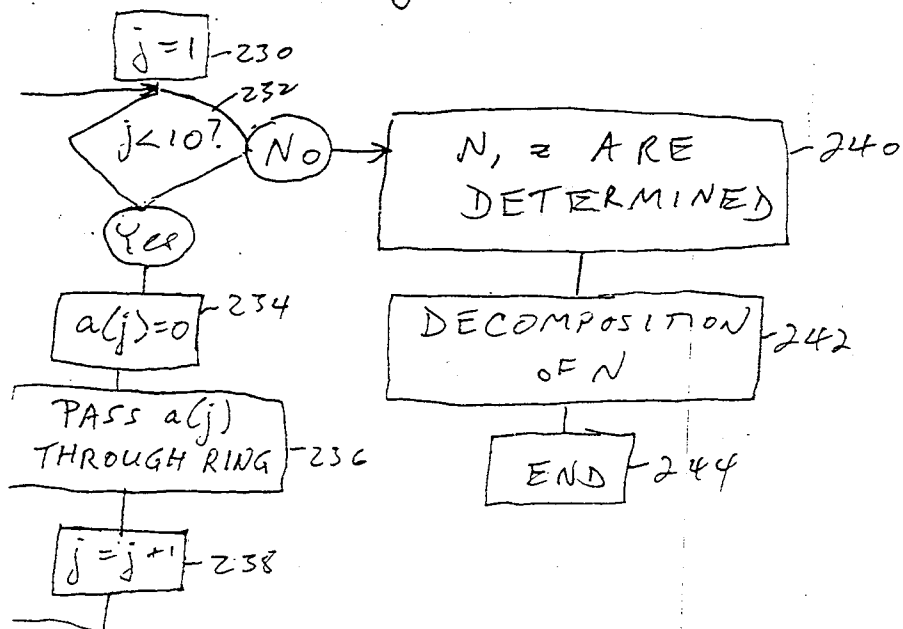 j=1
230
232
j<10?
No
N, z ARE
DETERMINED
240
Yes
a(j)=0
234
DECOMPOSITION
OF N
242
PASS a(j)
THROUGH RING
236
END
244
j=j+1
238